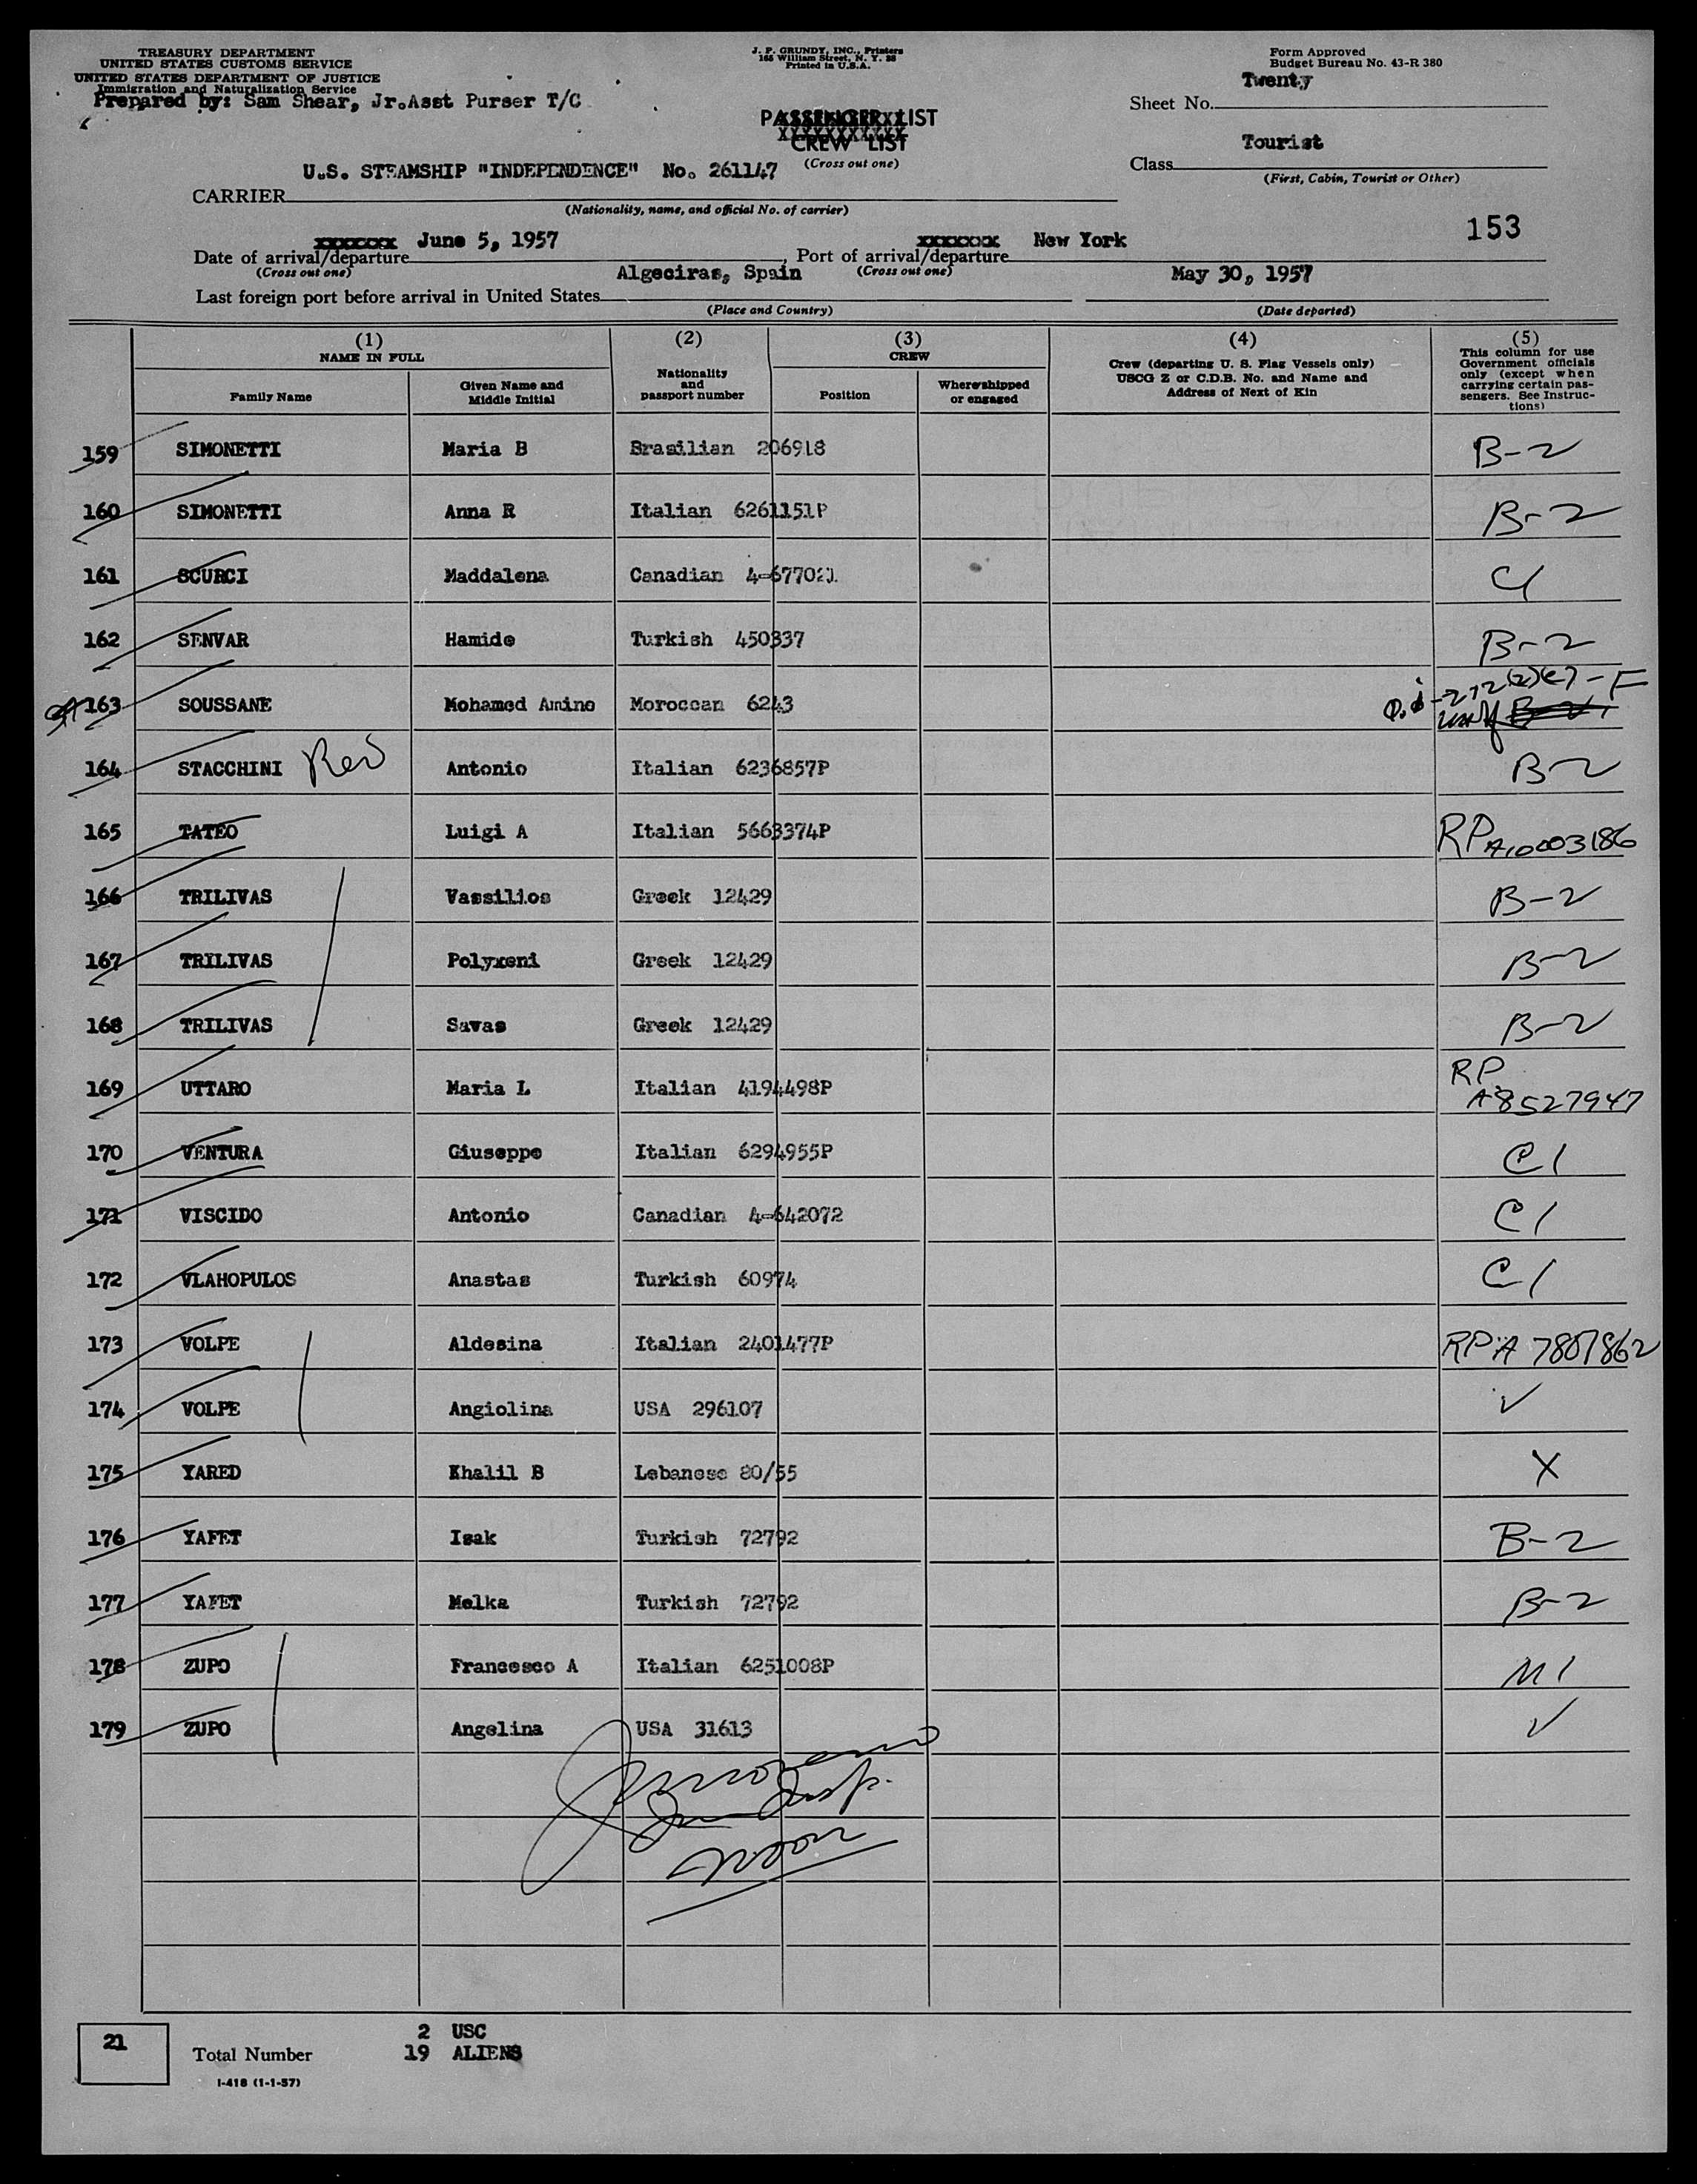 TREASURY DEPARTMENT
UNITED STATES CUSTOMS SERVICE
UNITED STATES DEPARTMENT OF JUSTICE
Immigration and Naturalization Service
Prepared by: Sam Shear, Jr.Asst Purser T/C
J. P. GRUNDY, INC., Printers
165 William Street, N. Y. 38
Printed in U.S.A.
Form Approved
Budget Bureau No. 43-R 380
Sheet No. Twenty
PASSENGER LIST
XXXXXXXXXXX
CREW LIST
(Cross out one)
Class Tourist
(First, Cabin, Tourist or Other)
CARRIER U.S. STEAMSHIP "INDEPENDENCE" No. 261147
(Nationality, name, and official No. of carrier)
153
Date of arrival/departure xxxxxxx June 5, 1957, Port of arrival/departure xxxxxxx New York
(Cross out one) (Cross out one)
Last foreign port before arrival in United States Algeciras, Spain May 30, 1957
(Place and Country) (Date departed)
(1) (2) (3) (4) (5)
NAME IN FULL
Family Name
Given Name and Middle Initial
Nationality and passport number
CREW
Position
Where shipped or engaged
Crew (departing U. S. Flag Vessels only)
USCG Z or C.D.B. No. and Name and
Address of Next of Kin
This column for use
Government officials
only (except when
carrying certain pas-
sengers. See Instruc-
tions)
159 SIMONETTI Maria B Brasilian 206918 B-2
160 SIMONETTI Anna R Italian 6261151P B-2
161 SCURCI Maddalena Canadian 4-677021 C1
162 SENVAR Hamide Turkish 450337 B-2
163 SOUSSANE Mohamed Amine Moroccan 6243 B-2
164 STACCHINI Rev Antonio Italian 6236857P B-2
165 TATEO Luigi A Italian 5663374P RP A10003186
166 TRILIVAS Vassilios Greek 12429 B-2
167 TRILIVAS Polyxeni Greek 12429 B-2
168 TRILIVAS Savas Greek 12429 B-2
169 UTTARO Maria L Italian 4194498P RP A8527947
170 VENTURA Giuseppe Italian 6294955P C1
171 VISCIDO Antonio Canadian 4-642072 C1
172 VLAHOPULOS Anastas Turkish 60974 C1
173 VOLPE Aldesina Italian 2401477P RP A 7801862
174 VOLPE Angiolina USA 296107 ✓
175 YARED Khalil B Lebanese 80/55 X
176 YAFET Isak Turkish 72792 B-2
177 YAFET Melka Turkish 72792 B-2
178 ZUPO Francesco A Italian 6251008P M1
179 ZUPO Angelina USA 31613 ✓
21
Total Number
2 USC
19 ALIENS
I-418 (1-1-57)